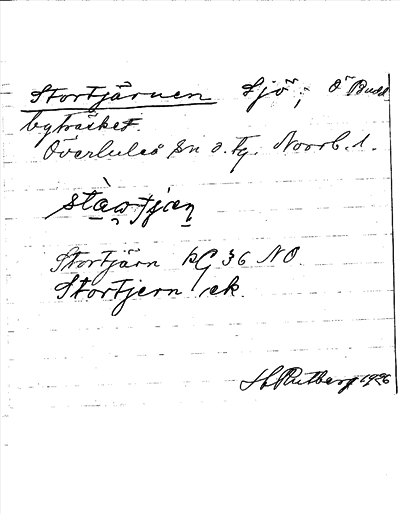 Stortjärnen Sjö; Ö Budd
byträsket.
Överluleå sn o. tg. Norrb. l.
Stortjärn bG 36 NO.
Stortjern ek.
H. Rutberg 1926